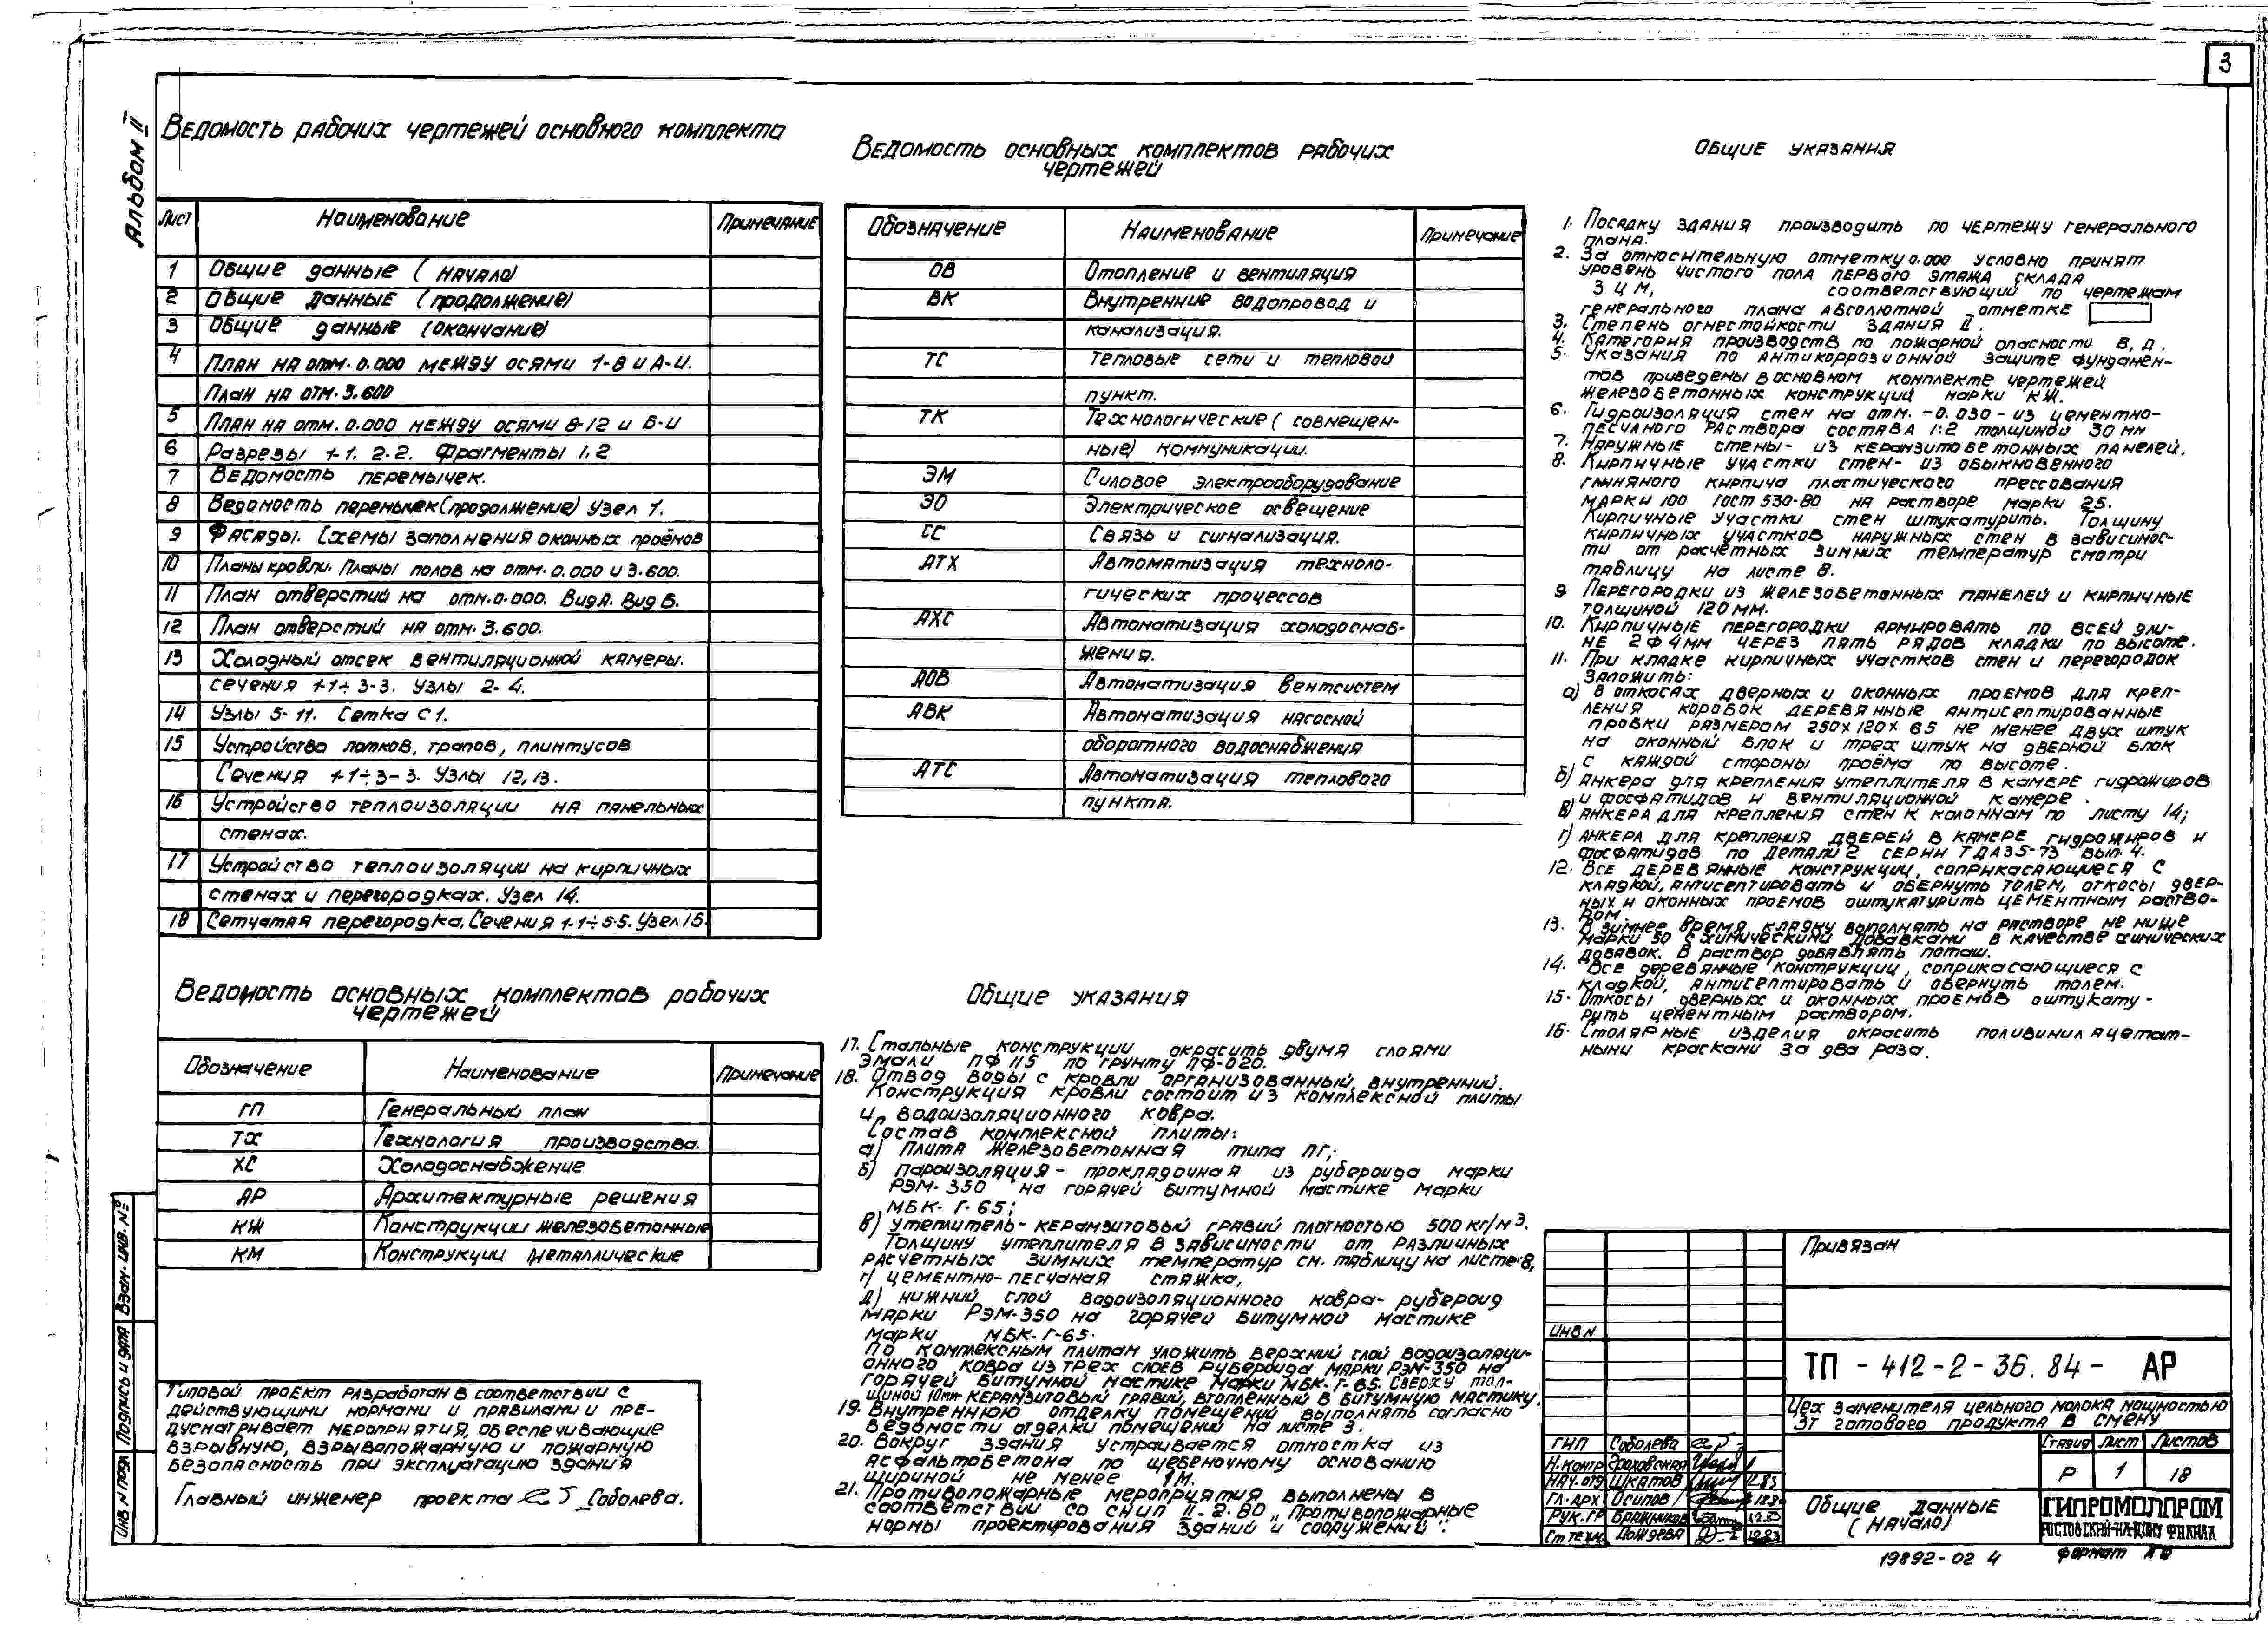 3
Альбом II
Ведомость рабочих чертежей основного комплекта
Лист Наименование Примечание
1 Общие данные (начало)
2 Общие данные (продолжение)
3 Общие данные (окончание)
4 План на отм. 0.000 между осями 1-8 и А-И.
План на отм. 3.600
5 План на отм. 0.000 между осями 8-12 и Б-И
6 Разрезы 1-1. 2-2. Фрагменты 1,2
7 Ведомость перемычек.
8 Ведомость перемычек (продолжение) Узел 1.
9 Фасады. Схемы заполнения оконных проёмов
10 Планы кровли. Планы полов на отм. 0.000 и 3.600.
11 План отверстий на отм. 0.000. Вид А. Вид Б.
12 План отверстий на отм. 3.600.
13 Холодный отсек вентиляционной камеры.
сечения 1-1÷3-3. Узлы 2-4.
14 Узлы 5-11. Сетка С1.
15 Устройство лотков, трапов, плинтусов
Сечения 1-1÷3-3. Узлы 12,13.
16 Устройство теплоизоляции на панельных
стенах.
17 Устройство теплоизоляции на кирпичных
стенах и перегородках. Узел 14.
18 Сетчатая перегородка. Сечения 1-1÷5-5. Узел 15.
Ведомость основных комплектов рабочих
чертежей
Обозначение Наименование Примечание
ГП Генеральный план
ТХ Технология производства.
ХС Холодоснабжение
АР Архитектурные решения
КЖ Конструкции железобетонные
КМ Конструкции металлические
Типовой проект разработан в соответствии с
действующими нормами и правилами и пре-
дусматривает мероприятия, обеспечивающие
взрывную, взрывопожарную и пожарную
безопасность при эксплуатацию здания
Главный инженер проекта Соболева.
Ведомость основных комплектов рабочих
чертежей
Обозначение Наименование Примечание
ОВ Отопление и вентиляция
ВК Внутренние водопровод и
канализация.
ТС Тепловые сети и тепловой
пункт.
ТК Технологические (совмещен-
ные) коммуникации.
ЭМ Силовое электрооборудование
ЭО Электрическое освещение
СС Связь и сигнализация.
АТХ Автоматизация техноло-
гических процессов
АХС Автоматизация холодоснаб-
жения.
АОВ Автоматизация вентсистем
АВК Автоматизация насосной
оборотного водоснабжения
АТС Автоматизация теплового
пункта.
Общие указания
17. Стальные конструкции окрасить двумя слоями
эмали ПФ 115 по грунту ПФ-020.
18. Отвод воды с кровли организованный, внутренний.
Конструкция кровли состоит из комплексной плиты
и водоизоляционного ковра.
Состав комплексной плиты:
а) плита железобетонная типа ПГ;
б) пароизоляция - прокладочная из рубероида марки
РЭМ-350 на горячей битумной мастике марки
МБК-Г-65;
в) утеплитель - керамзитовый гравий плотностью 500 кг/м3.
Толщину утеплителя в зависимости от различных
расчетных зимних температур см. таблицу на листе 8,
г) цементно-песчаная стяжка,
д) нижний слой водоизоляционного ковра - рубероид
марки РЭМ-350 на горячей битумной мастике
марки МБК-Г-65.
По комплексным плитам уложить верхний слой водоизоляци-
онного ковра из трех слоев рубероида марки РЭМ-350 на
горячей битумной мастике марки МБК-Г-65. Сверху тол-
щиной 10мм керамзитовый гравий, втопленный в битумную мастику.
19. Внутреннюю отделку помещений выполнять согласно
ведомости отделки помещений на листе 3.
20. Вокруг здания устраивается отмостка из
асфальтобетона по щебеночному основанию
шириной не менее 1м.
21. Противопожарные мероприятия выполнены в
соответствии со СНиП II-2-80 „Противопожарные
нормы проектирования зданий и сооружений".
Общие указания
1. Посадку здания производить по чертежу генерального
плана.
2. За относительную отметку 0.000 условно принят
уровень чистого пола первого этажа склада
ЗЦМ, соответствующий по чертежам
генерального плана абсолютной отметке
3. Степень огнестойкости здания II.
4. Категория производств по пожарной опасности В, Д.
5. Указания по антикоррозионной защите фундамен-
тов приведены в основном комплекте чертежей
железобетонных конструкций марки КЖ.
6. Гидроизоляция стен на отм. -0.030 - из цементно-
песчаного раствора состава 1:2 толщиной 30 мм
7. Наружные стены - из керамзитобетонных панелей.
8. Кирпичные участки стен - из обыкновенного
глиняного кирпича пластического прессования
марки 100 ГОСТ 530-80 на растворе марки 25.
Кирпичные участки стен штукатурить. Толщину
кирпичных участков наружных стен в зависимос-
ти от расчетных зимних температур смотри
таблицу на листе 8.
9. Перегородки из железобетонных панелей и кирпичные
толщиной 120мм.
10. Кирпичные перегородки армировать по всей дли-
не 2ф4мм через пять рядов кладки по высоте.
11. При кладке кирпичных участков стен и перегородок
заложить:
а) в откосах дверных и оконных проемов для креп-
ления коробок деревянные антисептированные
пробки размером 250х120х65 не менее двух штук
на оконный блок и трех штук на дверной блок
с каждой стороны проёма по высоте.
б) анкера для крепления утеплителя в камере гидрожиров
и фосфатидов и вентиляционной камере.
в) анкера для крепления стен к колоннам по листу 14;
г) анкера для крепления дверей в камере гидрожиров и
фосфатидов по детали 2 серии ТДА35-73 вып. 4.
12. Все деревянные конструкции, соприкасающиеся с
кладкой, антисептировать и обернуть толем, откосы двер-
ных и оконных проемов оштукатурить цементным раство-
ром.
13. В зимнее время кладку выполнять на растворе не ниже
марки 50 с химическими добавками в качестве химических
добавок. В раствор добавлять поташ.
14. Все деревянные конструкции, соприкасающиеся с
кладкой, антисептировать и обернуть толем.
15. Откосы дверных и оконных проемов оштукату-
рить цементным раствором.
16. Столярные изделия окрасить поливинилацетат-
ными красками за два раза.
Привязан
Инв N
ТП - 412-2-36.84- АР
Цех заменителя цельного молока мощностью
3т готового продукта в смену
ГИП Соболева
Н.контр Ерховская
Нач.отд Шкатов 12.83
Гл.арх. Осипов 12.83
Рук.гр Бражников 12.83
Ст техн Дождева 12.83
Стадия Лист Листов
Р 1 18
Общие данные
(начало)
ГИПРОМОЛПРОМ
РОСТОВСКИЙ-НА-ДОНУ ФИЛИАЛ
19892-02 4
формат
Инв N подл Подпись и дата Взам. инв. №